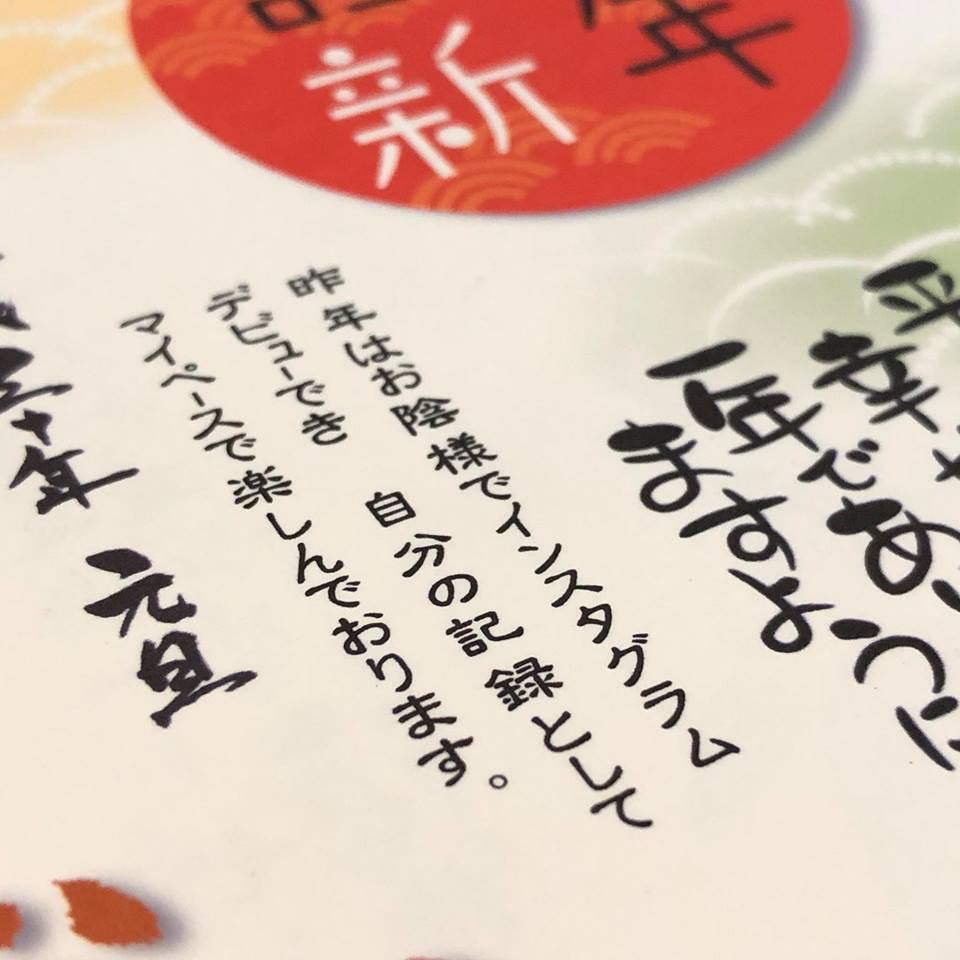 年
新
平
幸
一年であり
ますように
昨年はお陰様でインスタグラム
デビューでき　自分の記録として
マイペースで楽しんでおります。
三十年 元旦